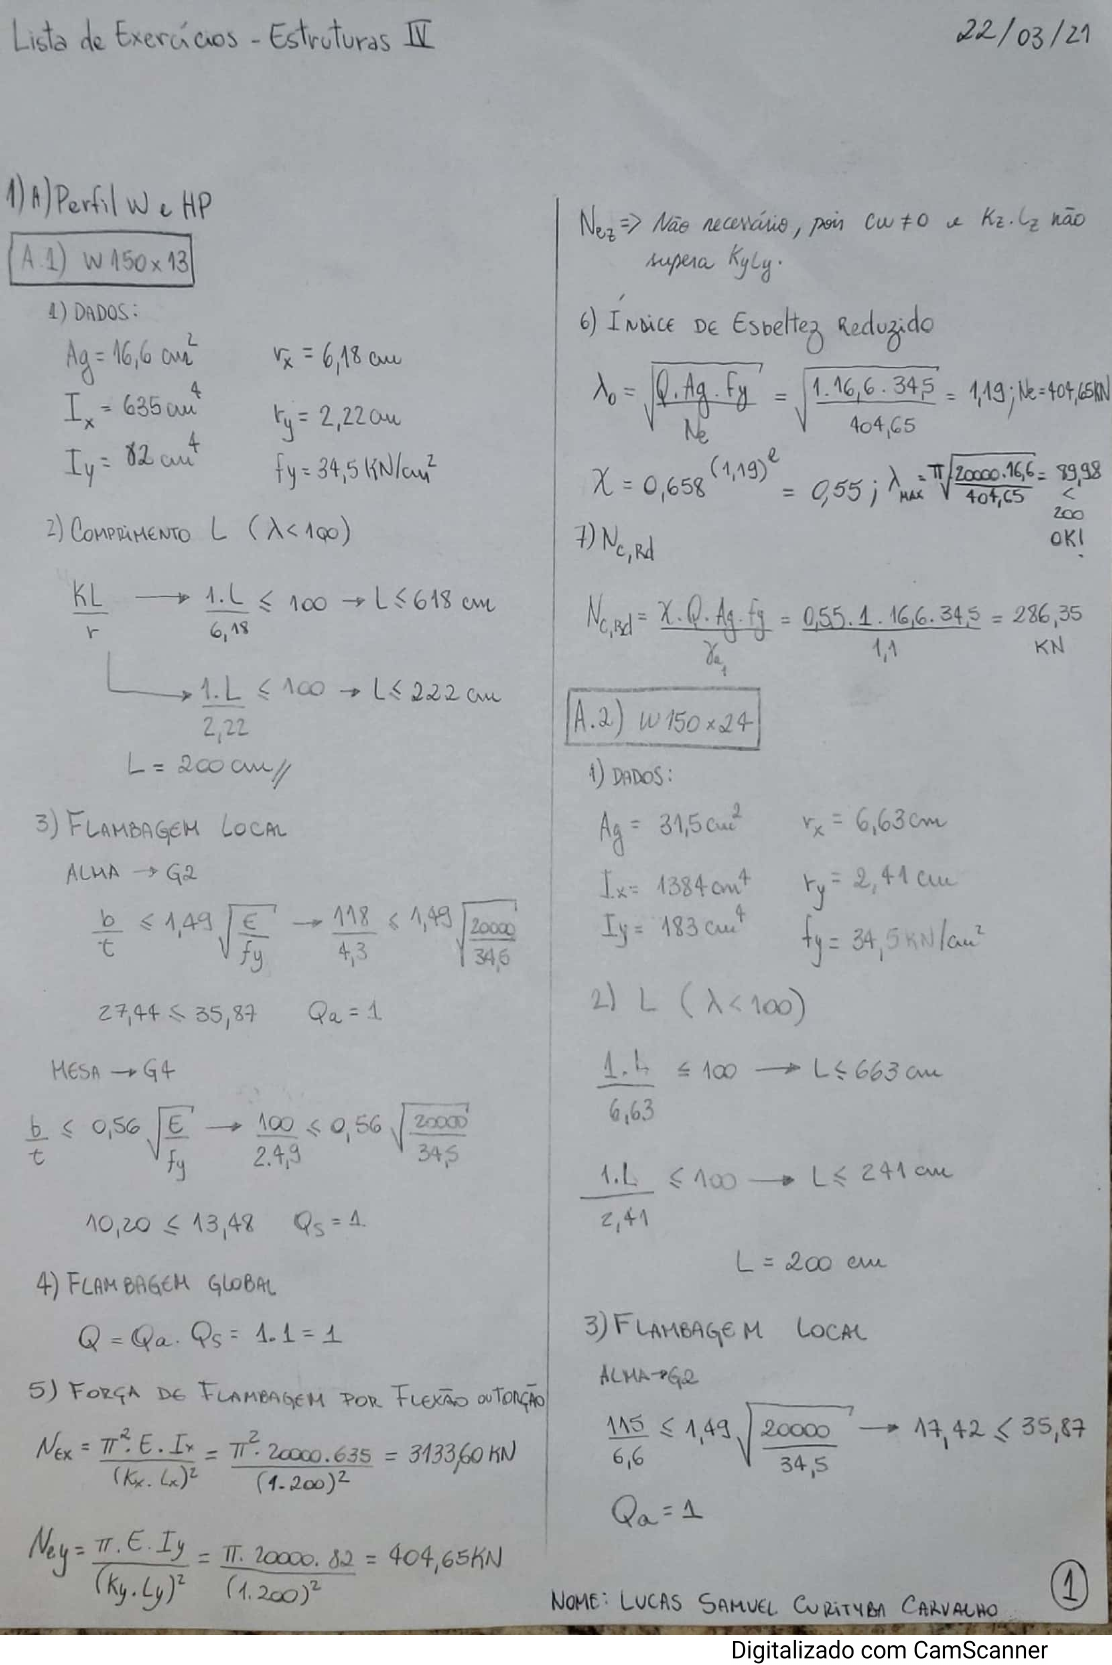 Lista de Exercícios - Estruturas IV
22/03/21
1) A) Perfil W e HP
A.1) W 150 x 13
1) DADOS:
Ag = 16,6 cm² rx = 6,18 cm
Ix = 635 cm⁴ ry = 2,22 cm
Iy = 82 cm⁴ fy = 34,5 KN/cm²
2) COMPRIMENTO L (λ < 100)
KL/r → 1.L/6,18 ≤ 100 → L ≤ 618 cm
→ 1.L/2,22 ≤ 100 → L ≤ 222 cm
L = 200 cm //
3) FLAMBAGEM LOCAL
ALMA → G2
b/t ≤ 1,49 √(E/fy) → 118/4,3 ≤ 1,49 √(20000/34,5)
27,44 ≤ 35,87 Qa = 1
MESA → G4
b/t ≤ 0,56 √(E/fy) → 100/2.4,9 ≤ 0,56 √(20000/34,5)
10,20 ≤ 13,48 Qs = 1
4) FLAMBAGEM GLOBAL
Q = Qa . Qs = 1.1 = 1
5) FORÇA DE FLAMBAGEM POR FLEXÃO OU TORÇÃO
Nex = π². E . Ix/(Kx . Lx)² = π². 20000.635/(1.200)² = 3133,60 KN
Ney = π. E . Iy/(Ky . Ly)² = π. 20000. 82/(1.200)² = 404,65KN
Nez => Não necessário, pois cw ≠ 0 e Kz.Lz não
supera KyLy.
6) ÍNDICE DE ESBELTEZ REDUZIDO
λ₀ = √(Q.Ag.fy/Ne) = √(1.16,6.34,5/404,65) = 1,19; Ne = 404,65KN
χ = 0,658^(1,19)² = 0,55; λMAX = π√(20000.16,6/404,65) = 89,98
<
200
OK!
7) Nc,Rd
Nc,Rd = χ.Q.Ag.fy/γa₁ = 0,55.1.16,6.34,5/1,1 = 286,35
KN
A.2) W 150 x 24
1) DADOS:
Ag = 31,5 cm² rx = 6,63 cm
Ix = 1384 cm⁴ ry = 2,41 cm
Iy = 183 cm⁴ fy = 34,5 KN/cm²
2) L (λ < 100)
1.L/6,63 ≤ 100 → L ≤ 663 cm
1.L/2,41 ≤ 100 → L ≤ 241 cm
L = 200 cm
3) FLAMBAGEM LOCAL
ALMA → G2
115/6,6 ≤ 1,49 √(20000/34,5) → 17,42 ≤ 35,87
Qa = 1
1
NOME: LUCAS SAMUEL CURITYBA CARVALHO
Digitalizado com CamScanner